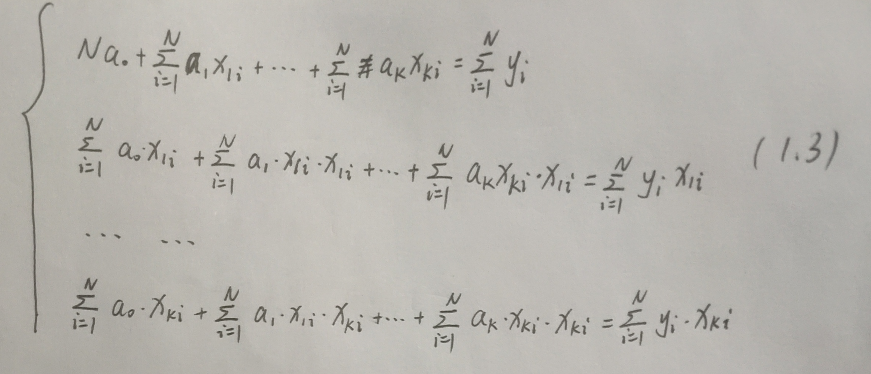 Na₀ + Σ_{i=1}^{N} a₁x₁ᵢ + ⋯ + Σ_{i=1}^{N} a_K x_{Ki} = Σ_{i=1}^{N} yᵢ
Σ_{i=1}^{N} a₀·x₁ᵢ + Σ_{i=1}^{N} a₁·x₁ᵢ·x₁ᵢ + ⋯ + Σ_{i=1}^{N} a_K x_{Ki}·x₁ᵢ = Σ_{i=1}^{N} yᵢ x₁ᵢ (1.3)
⋯ ⋯
Σ_{i=1}^{N} a₀·x_{Ki} + Σ_{i=1}^{N} a₁·x₁ᵢ·x_{Ki} + ⋯ + Σ_{i=1}^{N} a_K·x_{Ki}·x_{Ki} = Σ_{i=1}^{N} yᵢ·x_{Ki}